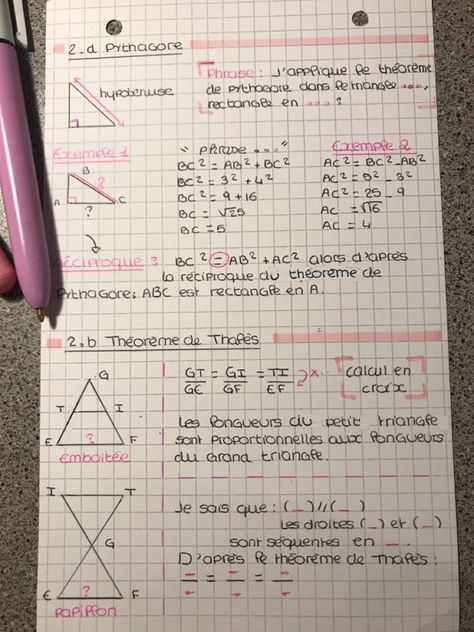 2.a Pythagore
hypoténuse
Phrase : J'applique le théorème
de Pythagore dans le triangle ....,
rectangle en .... ?
Exemple 1
B
A
C
?
?
" PHRASE ... "
BC² = AB² + BC²
BC² = 3² + 4²
BC² = 9 + 16
BC = √25
BC = 5
Exemple 2
AC² = BC² - AB²
AC² = 5² - 3²
AC² = 25 - 9
AC = √16
AC = 4
Réciproque : BC² = AB² + AC² alors d'après
la réciproque du théorème de
Pythagore, ABC est rectangle en A.
2.b Théorème de Thalès
G
T
I
E
?
F
Emboitée
GT/GE = GI/GF = TI/EF
x.
calcul en
croix
Les longueurs du petit triangle
sont proportionnelles aux longueurs
du Grand triangle.
I
T
G
E
?
F
Papillon
Je sais que : (_) // (_)
Les droites (_) et (_)
sont séquentes en _.
D'après le théorème de Thalès :
_/_ = _/_ = _/_